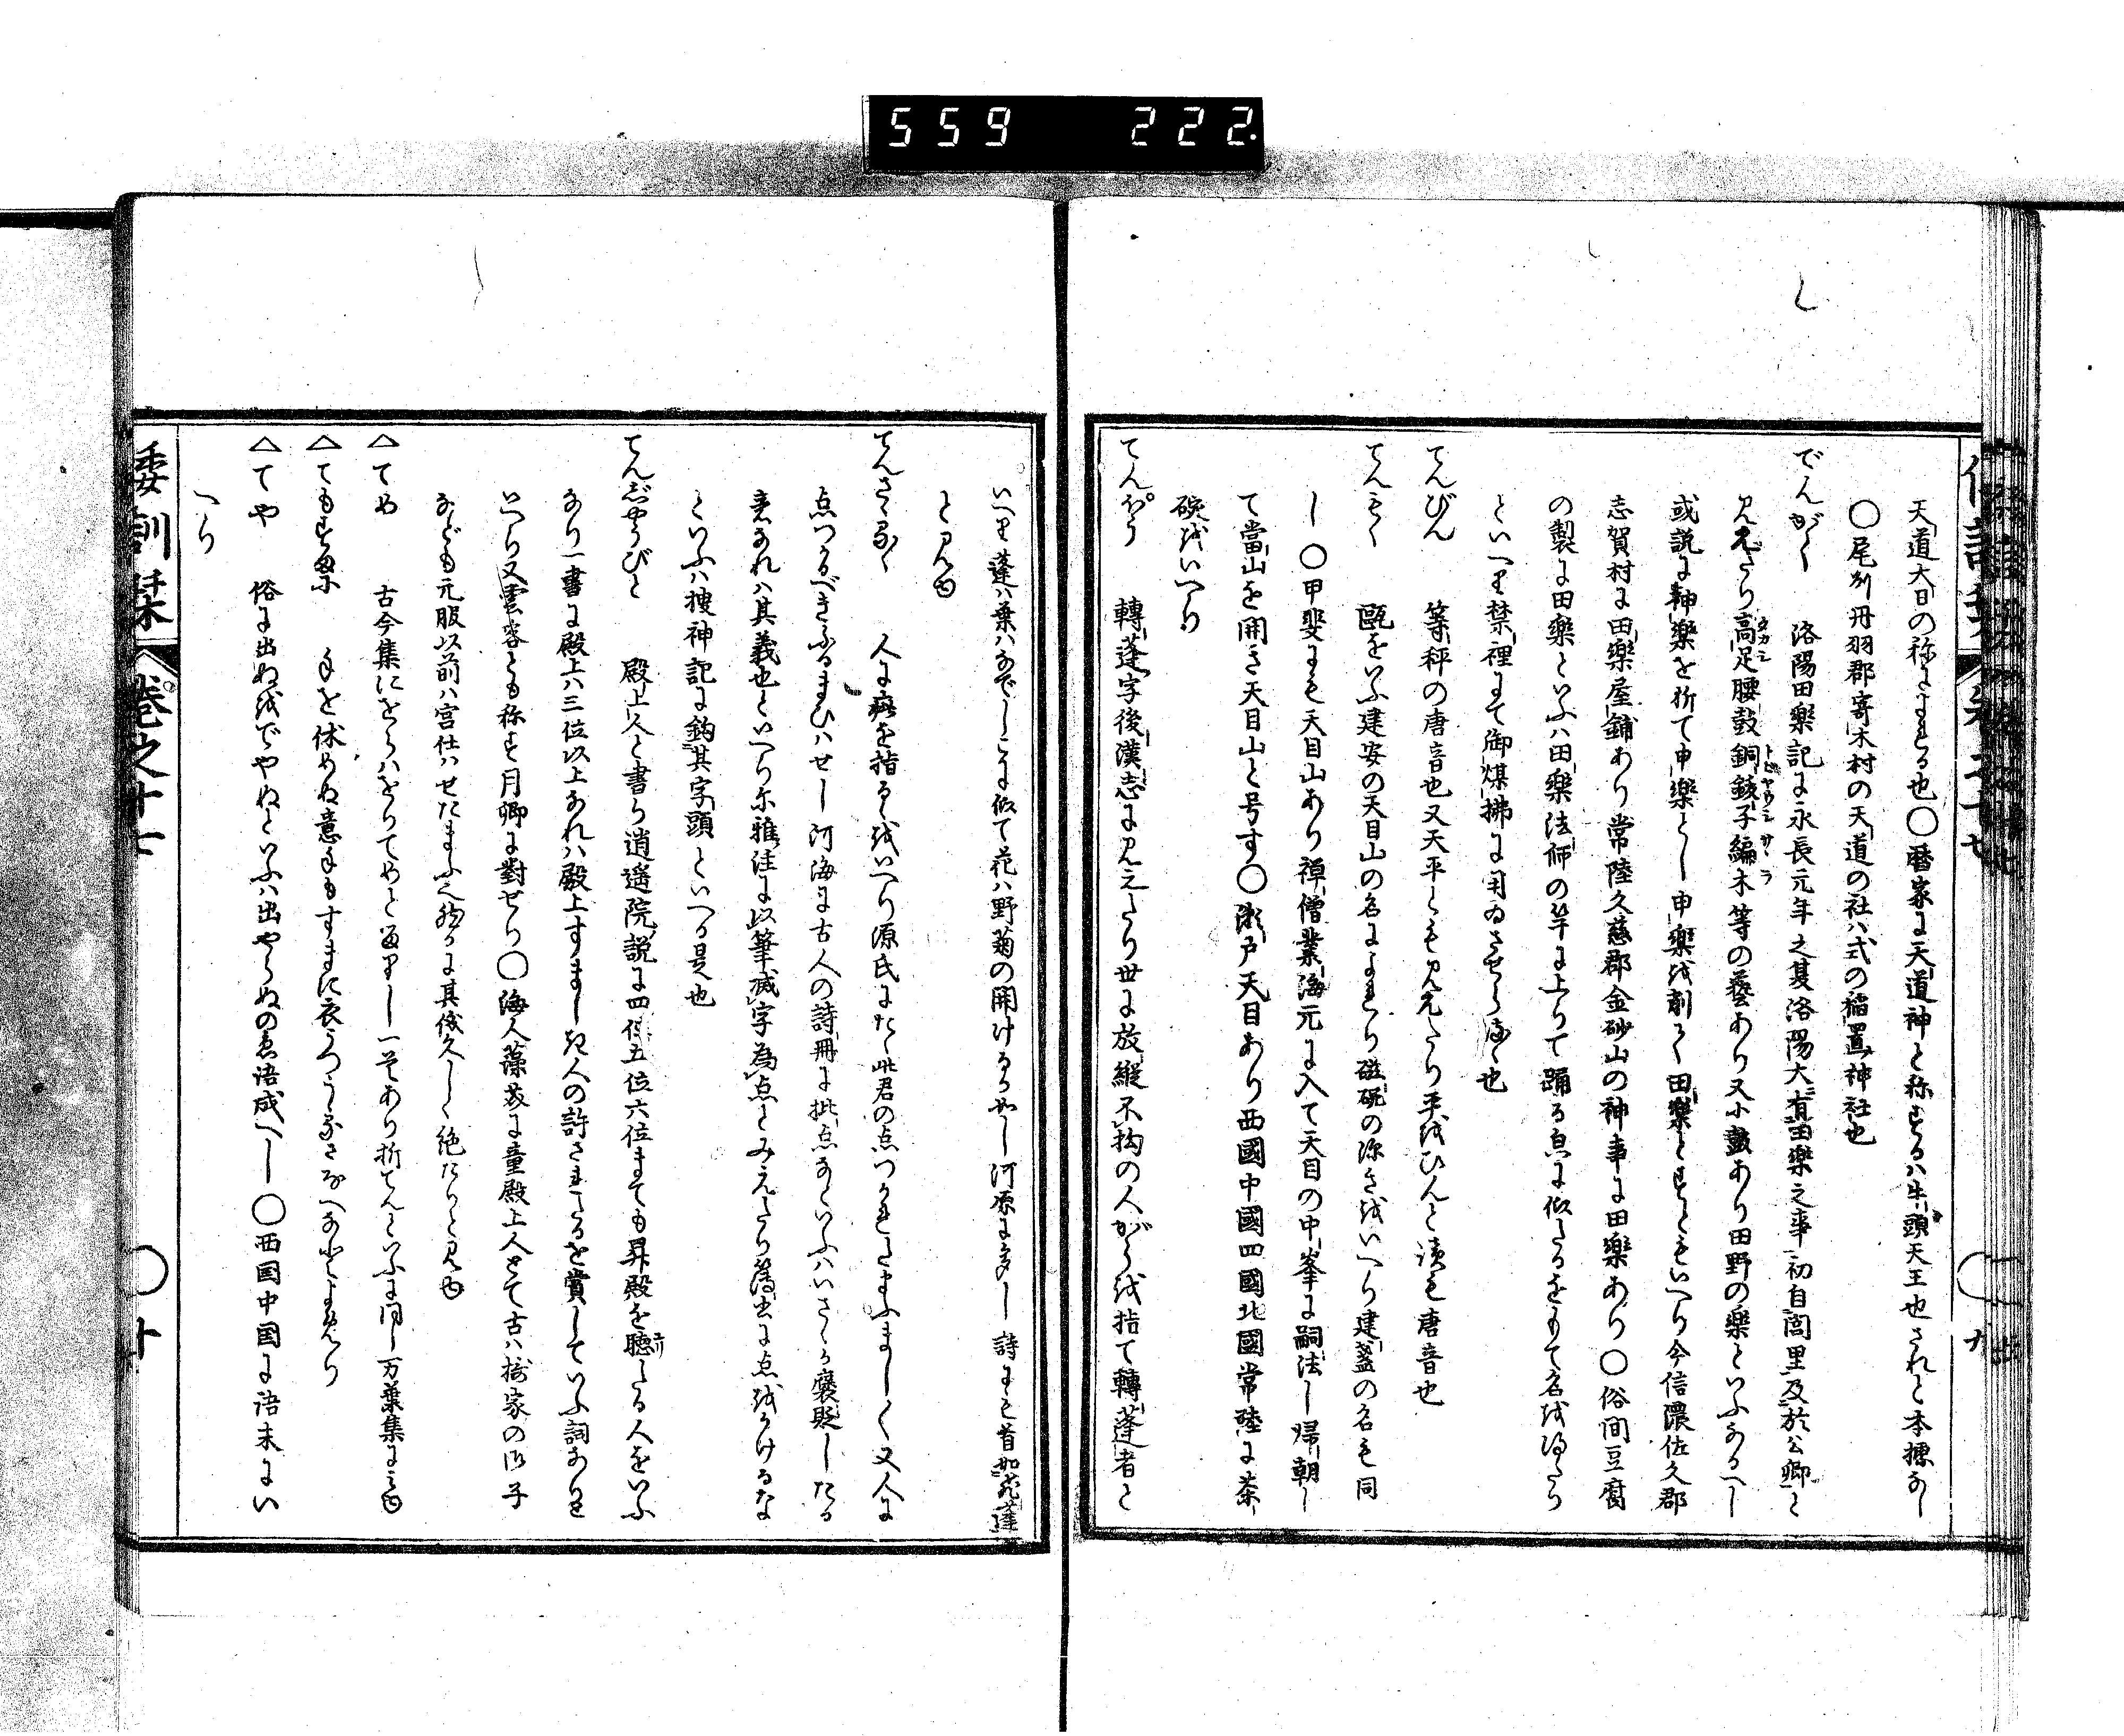 559 222.
天道大日の称によれる也〇暦家に天道神と称するハ牛頭天王也されと本據なし
〇尾州丹羽郡寄木村の天道の社ハ式の稲置神社也
でんがく 洛陽田樂記に永長元年之夏洛陽大有田樂之事初自閭里及於公卿と
見えたり高足腰鼓銅鈸子編木等の藝あり又小鼓あり田野の樂といふなるへし
タカシ トビヤウシ サヽラ
或説に神樂を折て申樂とし申樂を割く田樂とすともいへり今信濃佐久郡
志賀村に田樂屋鋪あり常陸久慈郡金砂山の神事に田樂あり〇俗間豆腐
の製に田樂といふハ田樂法師の竿に上りて踊る貌に似たるをもて名を得たり
といへり禁裡にて御煤拂に用ゐさせらるゝ也
てんびん 等秤の唐音也又天平とも見えたり平をひんと讀も唐音也
てんもく 甌をいふ建安の天目山の名によれり磁碗の深きをいへり建盞の名も同
し〇甲斐にも天目山あり禅僧業海元に入て天目の中峯に嗣法し帰朝し
て當山を開き天目山と号す〇瀬戸天目あり西國中國四國北國常陸に茶
碗をいへり
てんぽう 轉蓬字後漢志に見えたり世に放縦不拘の人がらを指て轉蓬者と
いへり蓬ハ葉ハなでしこに似て花ハ野菊の開けるか如し河原に多し詩にも首如飛蓬
と見ゆ
てんさゝるゝ 人に疵を指るゝをいへり源氏にたゝ此君の点つかれたまふましく又人に
点つかるべきふるまひハせし河海に古人の詩冊に批点なといふハいさゝか褒貶したる
意なれハ其義也といへり尓雅注に以筆滅字為点とみえたり簿書に点をかけるな
といふハ捜神記に鈎其字頭といへる是也
てんじやうびと 殿上人と書り逍遥院説に四位五位六位まても昇殿を聴りたる人をいふ
なり一書に殿上ハ三位以上なれハ殿上すましき人の許されたるを賞していふ詞なりと
いへり又雲客とも称す月卿に對せり〇海人藻芥に童殿上人とて古ハ摂家の御子
なども元服以前ハ宮仕ハせたまふへ然るに其儀久しく絶たりと見ゆ
△てめ 古今集にをらハをりてめとよめりし一そあり折てんといふに同し万葉集にみゆ
△てもすまに 手を休めぬ意手もすまに衣うつうなさなへなとよめり
△てや 俗に出ぬをでやぬといふハ出やらぬの急語成へし〇西国中国に語末にい
へり
倭訓栞 巻之十七 〇十